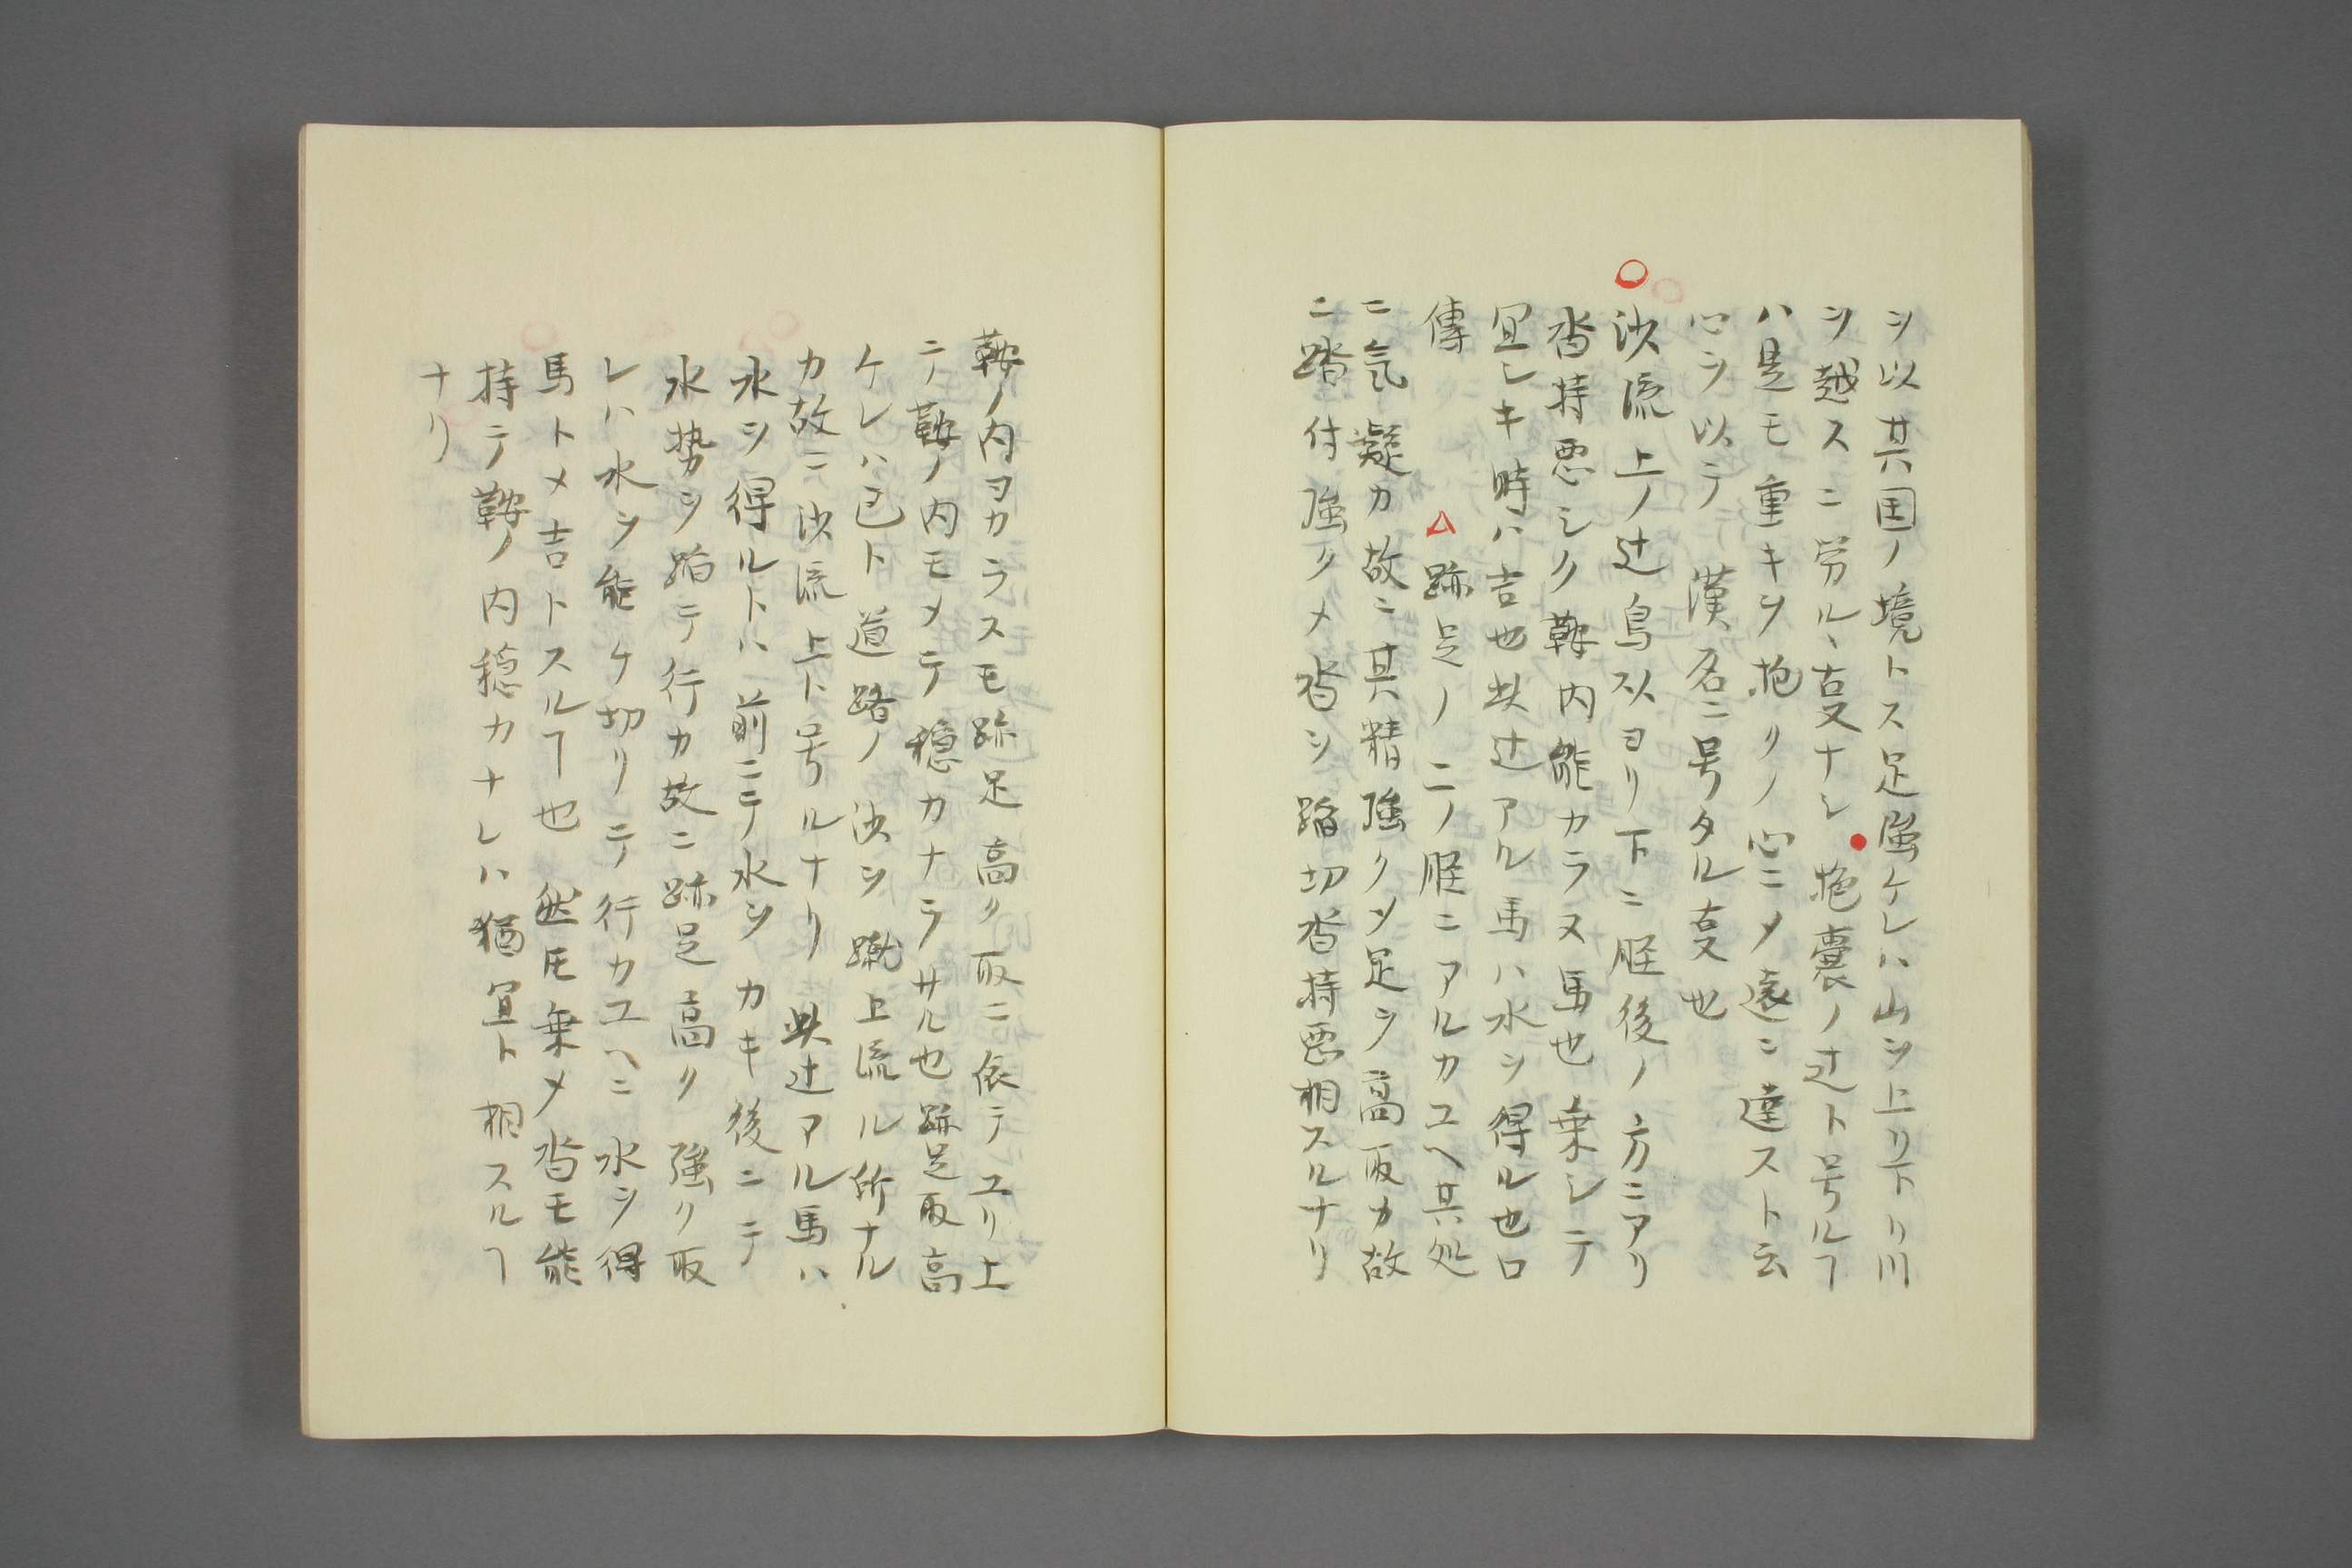 ヲ以其国ノ境トス足強ケレハ山ヲ上リ下リ川
ヲ越スニ労ルヽ叓ナシ●抱嚢ノ辻ト号ルヿ
ハ是モ重キヲ抱クノ心ニメ遠ニ達スト云
心ヲ以テ漢名ニ号タル叓也
○沙流上ノ辻鳥以ヨリ下ニ脛後ノ方ニアリ
沓持悪シク鞍内能カラヌ馬也乗シテ
宜シキ時ハ吉也此辻アル馬ハ水ヲ得ル也口
傳 △跡足ノ二ノ脛ニアルカユヘ其処
ニ気凝カ故ニ其精強クメ足ヲ高取カ故
ニ踏付強クメ沓ヲ踏切沓持悪相スルナリ
鞍ノ内ヨカラスモ跡足高ク取ニ依テユリ上
テ鞍ノ内モメテ穏カナラサル也跡足取高
ケレハ自ト道路ノ沙ヲ蹴上流ル所ナル
カ故ニ沙流上ト号ルナリ此辻アル馬ハ
水ヲ得ルトハ前ニテ水ヲカキ後ニテ
水勢ヲ踏テ行カ故ニ跡足高ク強ク取
レハ水ヲ能ケ切リテ行カユヘニ水ヲ得
馬トメ吉トスルヿ也然𪜈乗メ沓モ能
持テ鞍ノ内穏カナレハ猶宜ト相スルヿ
ナリ